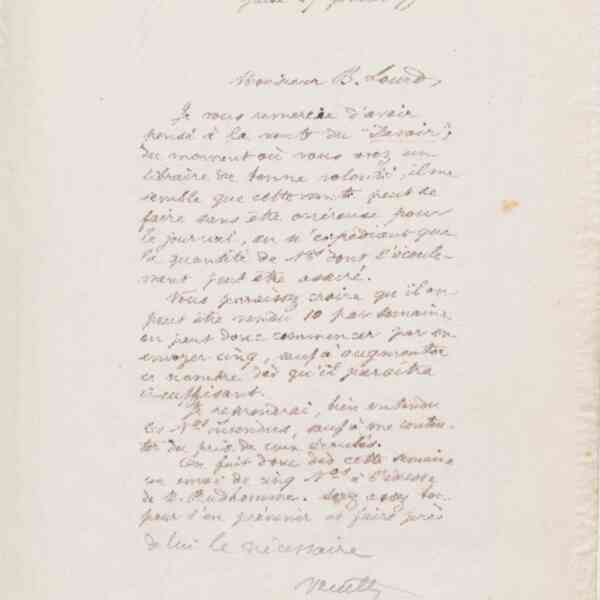 Monsieur B. Lourd,
Je vous remercie d'avoir
pensé à la vente du "Devoir";
du moment où vous avez un
libraire de bonne volonté, il me
semble que cette vente peut se
faire sans être onéreuse pour
le journal, en n'expédiant que
la quantité de Nos dont l'écoule-
ment peut être assuré.
Vous paraissez croire qu'il en
peut être vendu 10 par semaine
on peut donc commencer par en
envoyer cinq, sauf à augmenter
ce nombre dès qu'il paraîtra
insuffisant.
Je reprendrai, bien entendu
les Nos invendus, sauf à me conten-
ter du prix de ceux écoulés.
On fait donc dès cette semaine
un envoi de cinq Nos à l'adresse
de Prudhomme. soyez assez bon
pour l'en prévenir et faire près
de lui le nécessaire